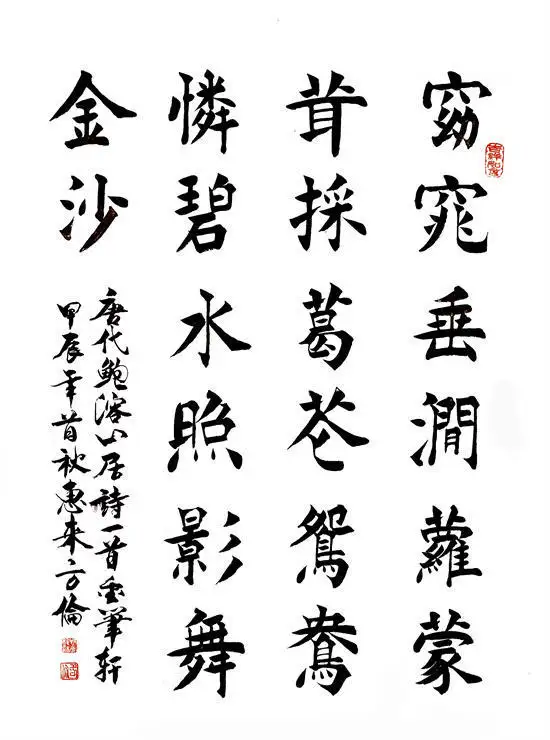 窈窕垂澗蘿蒙
茸採葛花鴛鴦
憐碧水照影舞
金沙
唐代鮑溶山居詩一首筆軒
甲辰年首秋惠來方倫